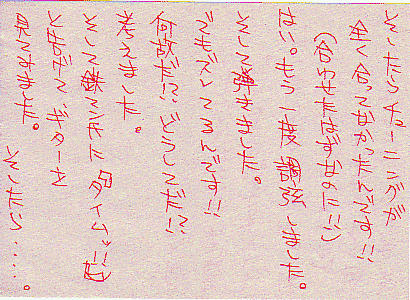 そしたらチューニングが
全く合ってなかったんです!!
(合わせたはずなのに!!)
はい。もう一度調弦しました。
そして弾きました。
でもズレてるんです!!
何故だ!? どうしてだ!?
考えました。
そして鉄っちゃん タイムッ!!
ともだちで ギターを
見てみました。
そしたら……。